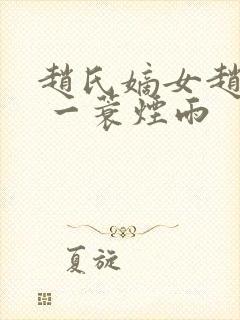 趙氏嫡女趙
一蓑煙雨
夏旋